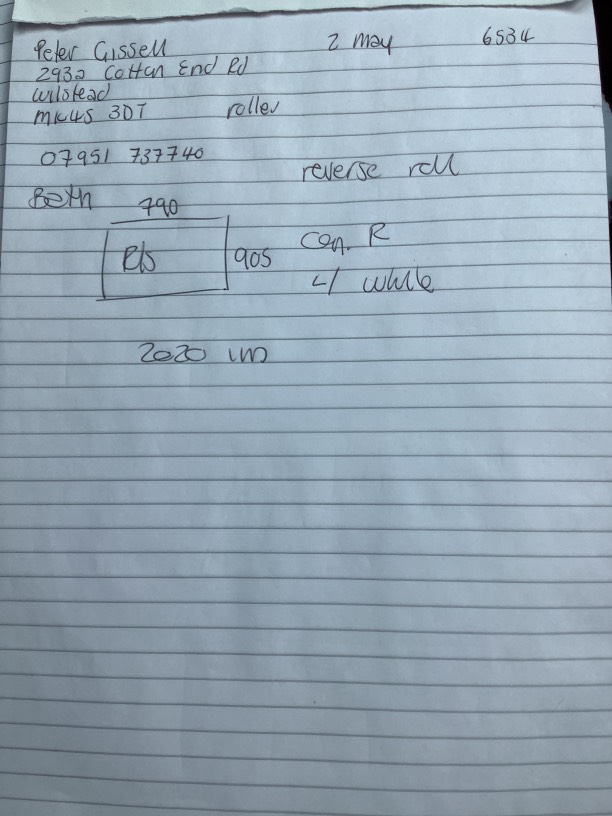 Peter Gissell 2 May 6534
293a Cotton End Rd
Wilstead
MK45 3DT roller
07951 737740
reverse roll
Bath 790
R/B 905 Con. R
L/ white
2020